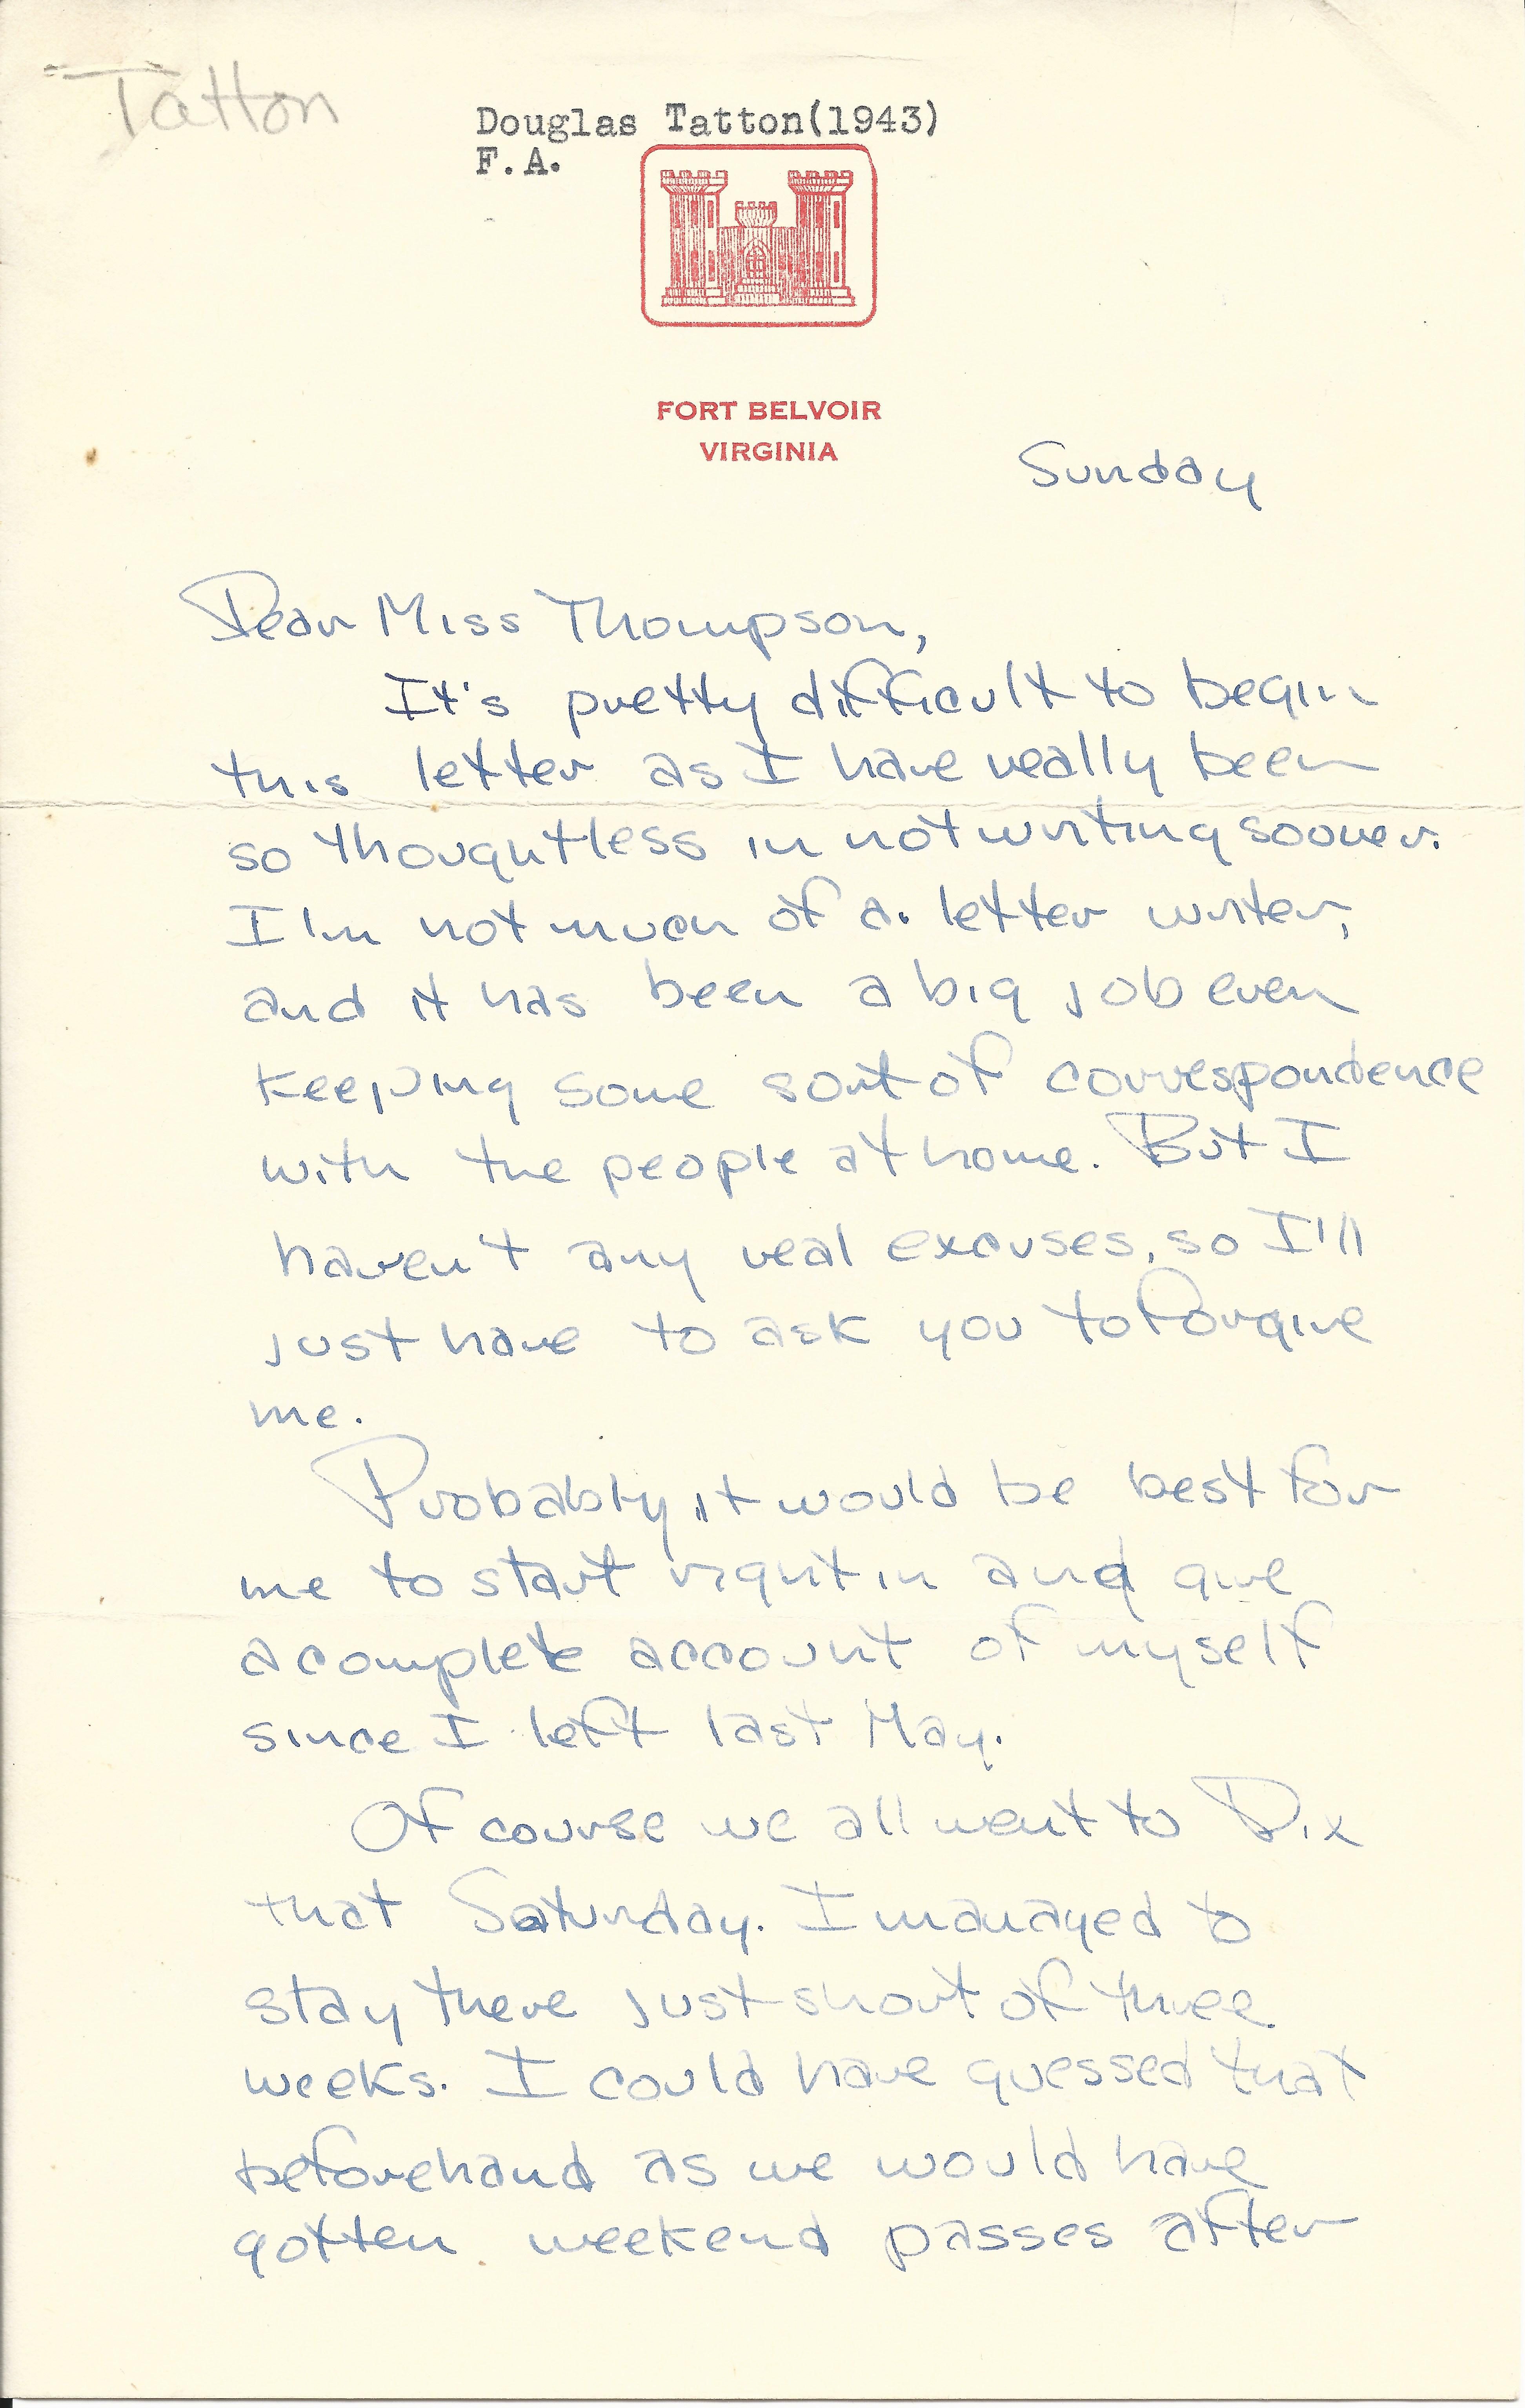 Tatton
Douglas Tatton(1943)
F.A.
FORT BELVOIR
VIRGINIA
Sunday
Dear Miss Thompson,
It's pretty difficult to begin
this letter as I have really been
so thoughtless in not writing sooner.
I'm not much of a letter writer,
and it has been a big job even
keeping some sort of correspondence
with the people at home. But I
haven't any real excuses, so I'll
just have to ask you to forgive
me.
Probably it would be best for
me to start right in and give
a complete account of myself
since I left last May.
Of course we all went to Dix
that Saturday. I managed to
stay there just short of three
weeks. I could have guessed that
beforehand as we would have
gotten weekend passes after